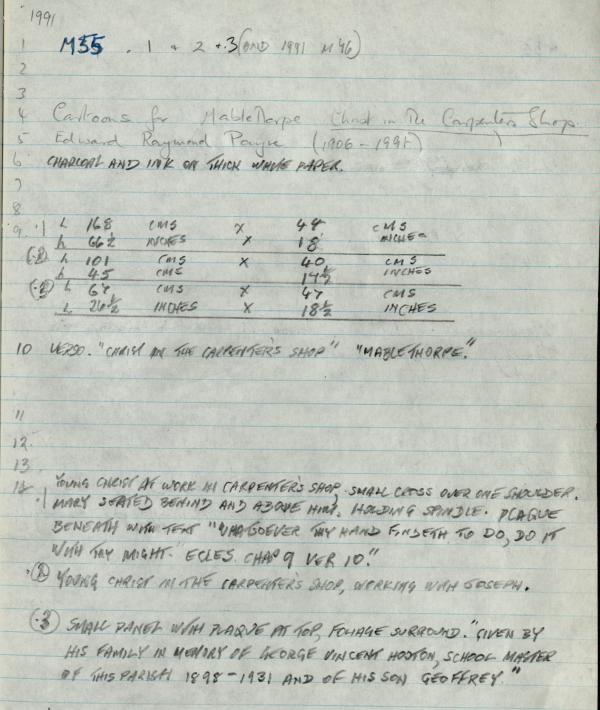 1991
1 M35 . 1 + 2 + .3 (AND 1991 M46)
2
3
4 Cartoons for Mablethorpe Christ in The Carpenters Shop.
5 Edward Raymond Payne (1906 - 1991)
6 CHARCOAL AND INK ON THICK WHITE PAPER.
7
8
9. .1 h 168 CMS X 44 CMS
h 66½ INCHES X 18 INCHES
(.2) h 101 CMS X 40 CMS
h 45 CMS 17½ INCHES
(.3) h 67 CMS X 47 CMS
h 26½ INCHES X 18½ INCHES
10 VERSO. "CHRIST IN THE CARPENTER'S SHOP" "MABLETHORPE."
11
12.
13.
14 YOUNG CHRIST AT WORK IN CARPENTER'S SHOP, SMALL CROSS OVER ONE SHOULDER.
.1 MARY SEATED BEHIND AND ABOVE HIM, HOLDING SPINDLE. PLAQUE
BENEATH WITH TEXT "WHATSOEVER THY HAND FINDETH TO DO, DO IT
WITH THY MIGHT. ECLES. CHAP 9 VER 10."
.(2) YOUNG CHRIST IN THE CARPENTER'S SHOP, WORKING WITH JOSEPH.
(.3) SMALL PANEL WITH PLAQUE AT TOP, FOLIAGE SURROUND. "GIVEN BY
HIS FAMILY IN MEMORY OF GEORGE VINCENT HOOTON, SCHOOL MASTER
OF THIS PARISH 1898-1931 AND OF HIS SON GEOFFREY."